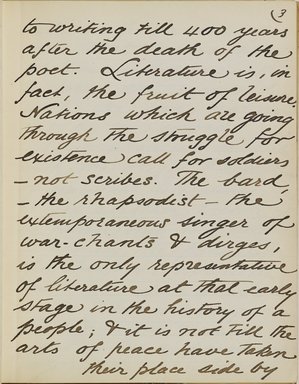 3
to writing till 400 years
after the death of the
poet. Literature is, in
fact, the fruit of leisure.
Nations which are going
through the struggle for
existence call for soldiers
- not scribes. The bard,
- the rhapsodist - the
extemporaneous singer of
war-chants & dirges,
is the only representative
of literature at that early
stage in the history of a
people; & it is not till the
arts of peace have taken
their place side by